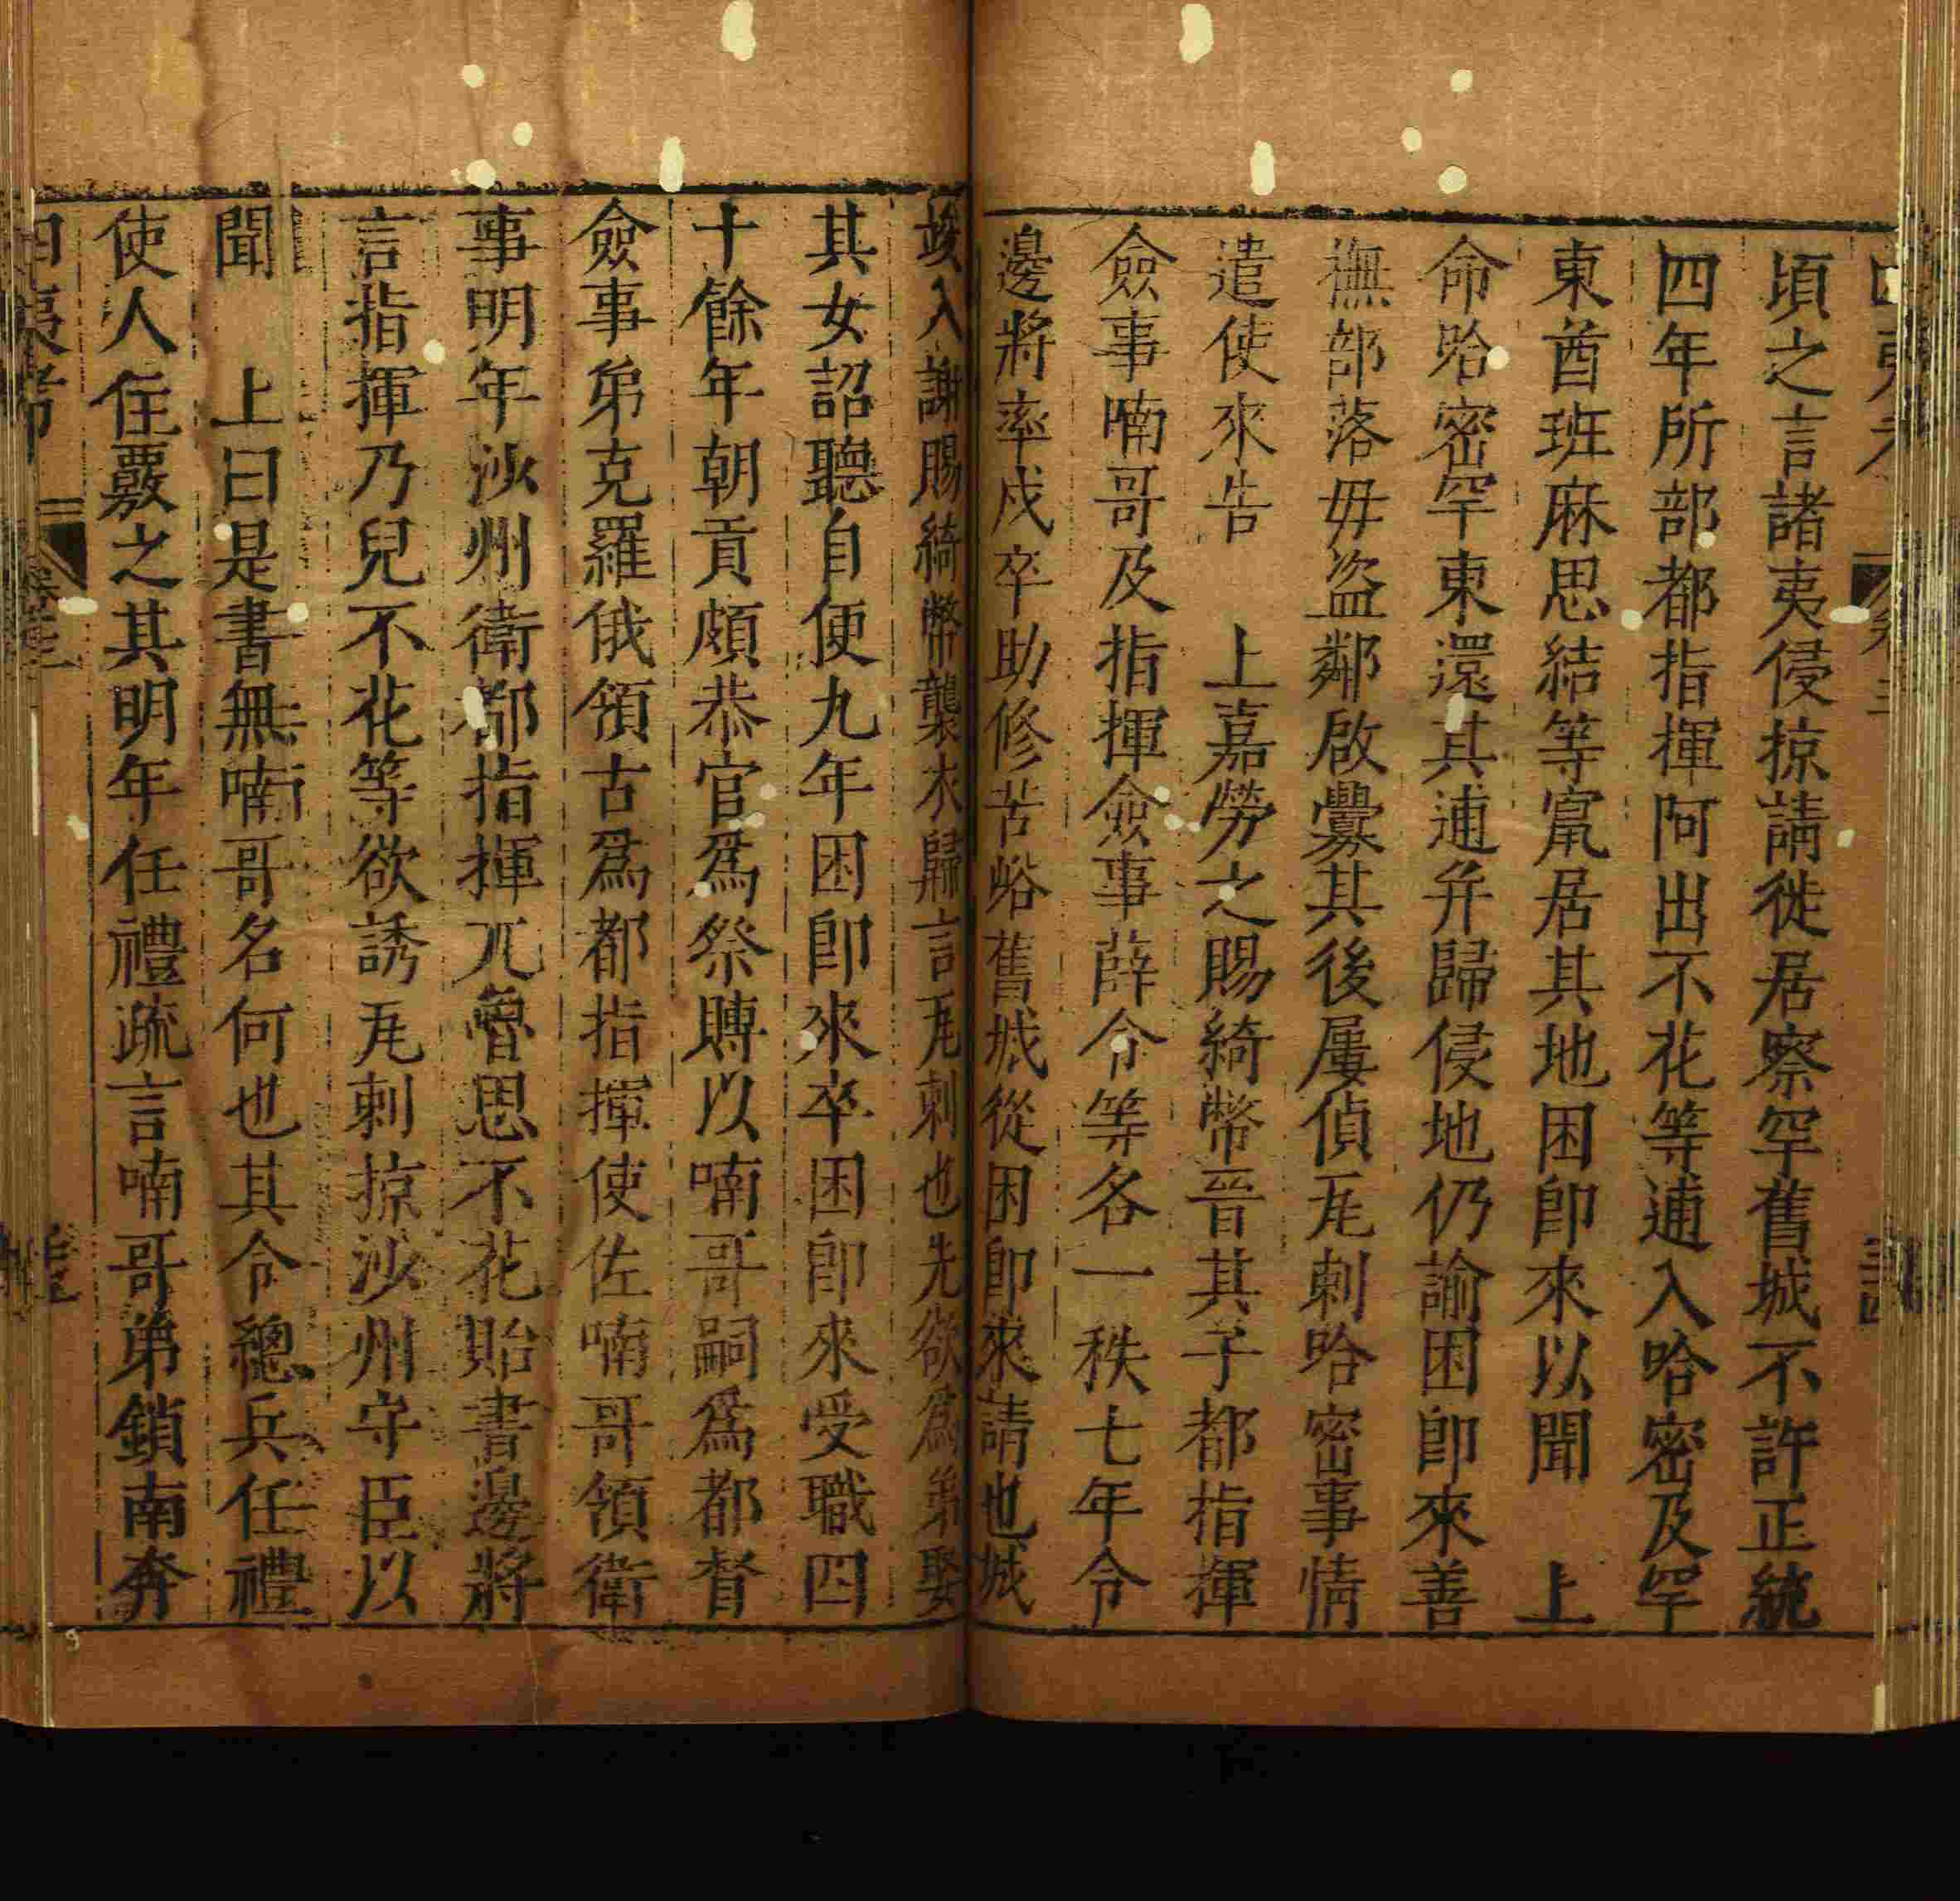 頃之言諸夷侵掠請徙居察罕舊城不許正統
四年所部都指揮阿出不花等逋入哈密及罕
東酋班麻思結等竄居其地困卽來以聞　上
命哈密罕東還其逋并歸侵地仍諭困卽來善
撫部落毋盜鄰啟釁其後屢偵瓦剌哈密事情
遣使來告　上嘉勞之賜綺幣晉其子都指揮
僉事喃哥及指揮僉事薛令等各一秩七年令
邊將率戍卒助修苦峪舊城從困卽來請也城
竣入謝賜綺幣襲衣歸言瓦剌也先欲爲弟娶
其女詔聽自便九年困卽來卒困卽來受職四
十餘年朝貢頗恭官爲祭賻以喃哥嗣爲都督
僉事弟克羅俄領古爲都指揮使佐喃哥領衛
事明年沙州衛都指揮兀魯思不花貽書邊將
言指揮乃兒不花等欲誘瓦剌掠沙州守臣以
聞　上曰是書無喃哥名何也其令總兵任禮
使人徃覈之其明年任禮疏言喃哥弟鎖南奔
四夷考